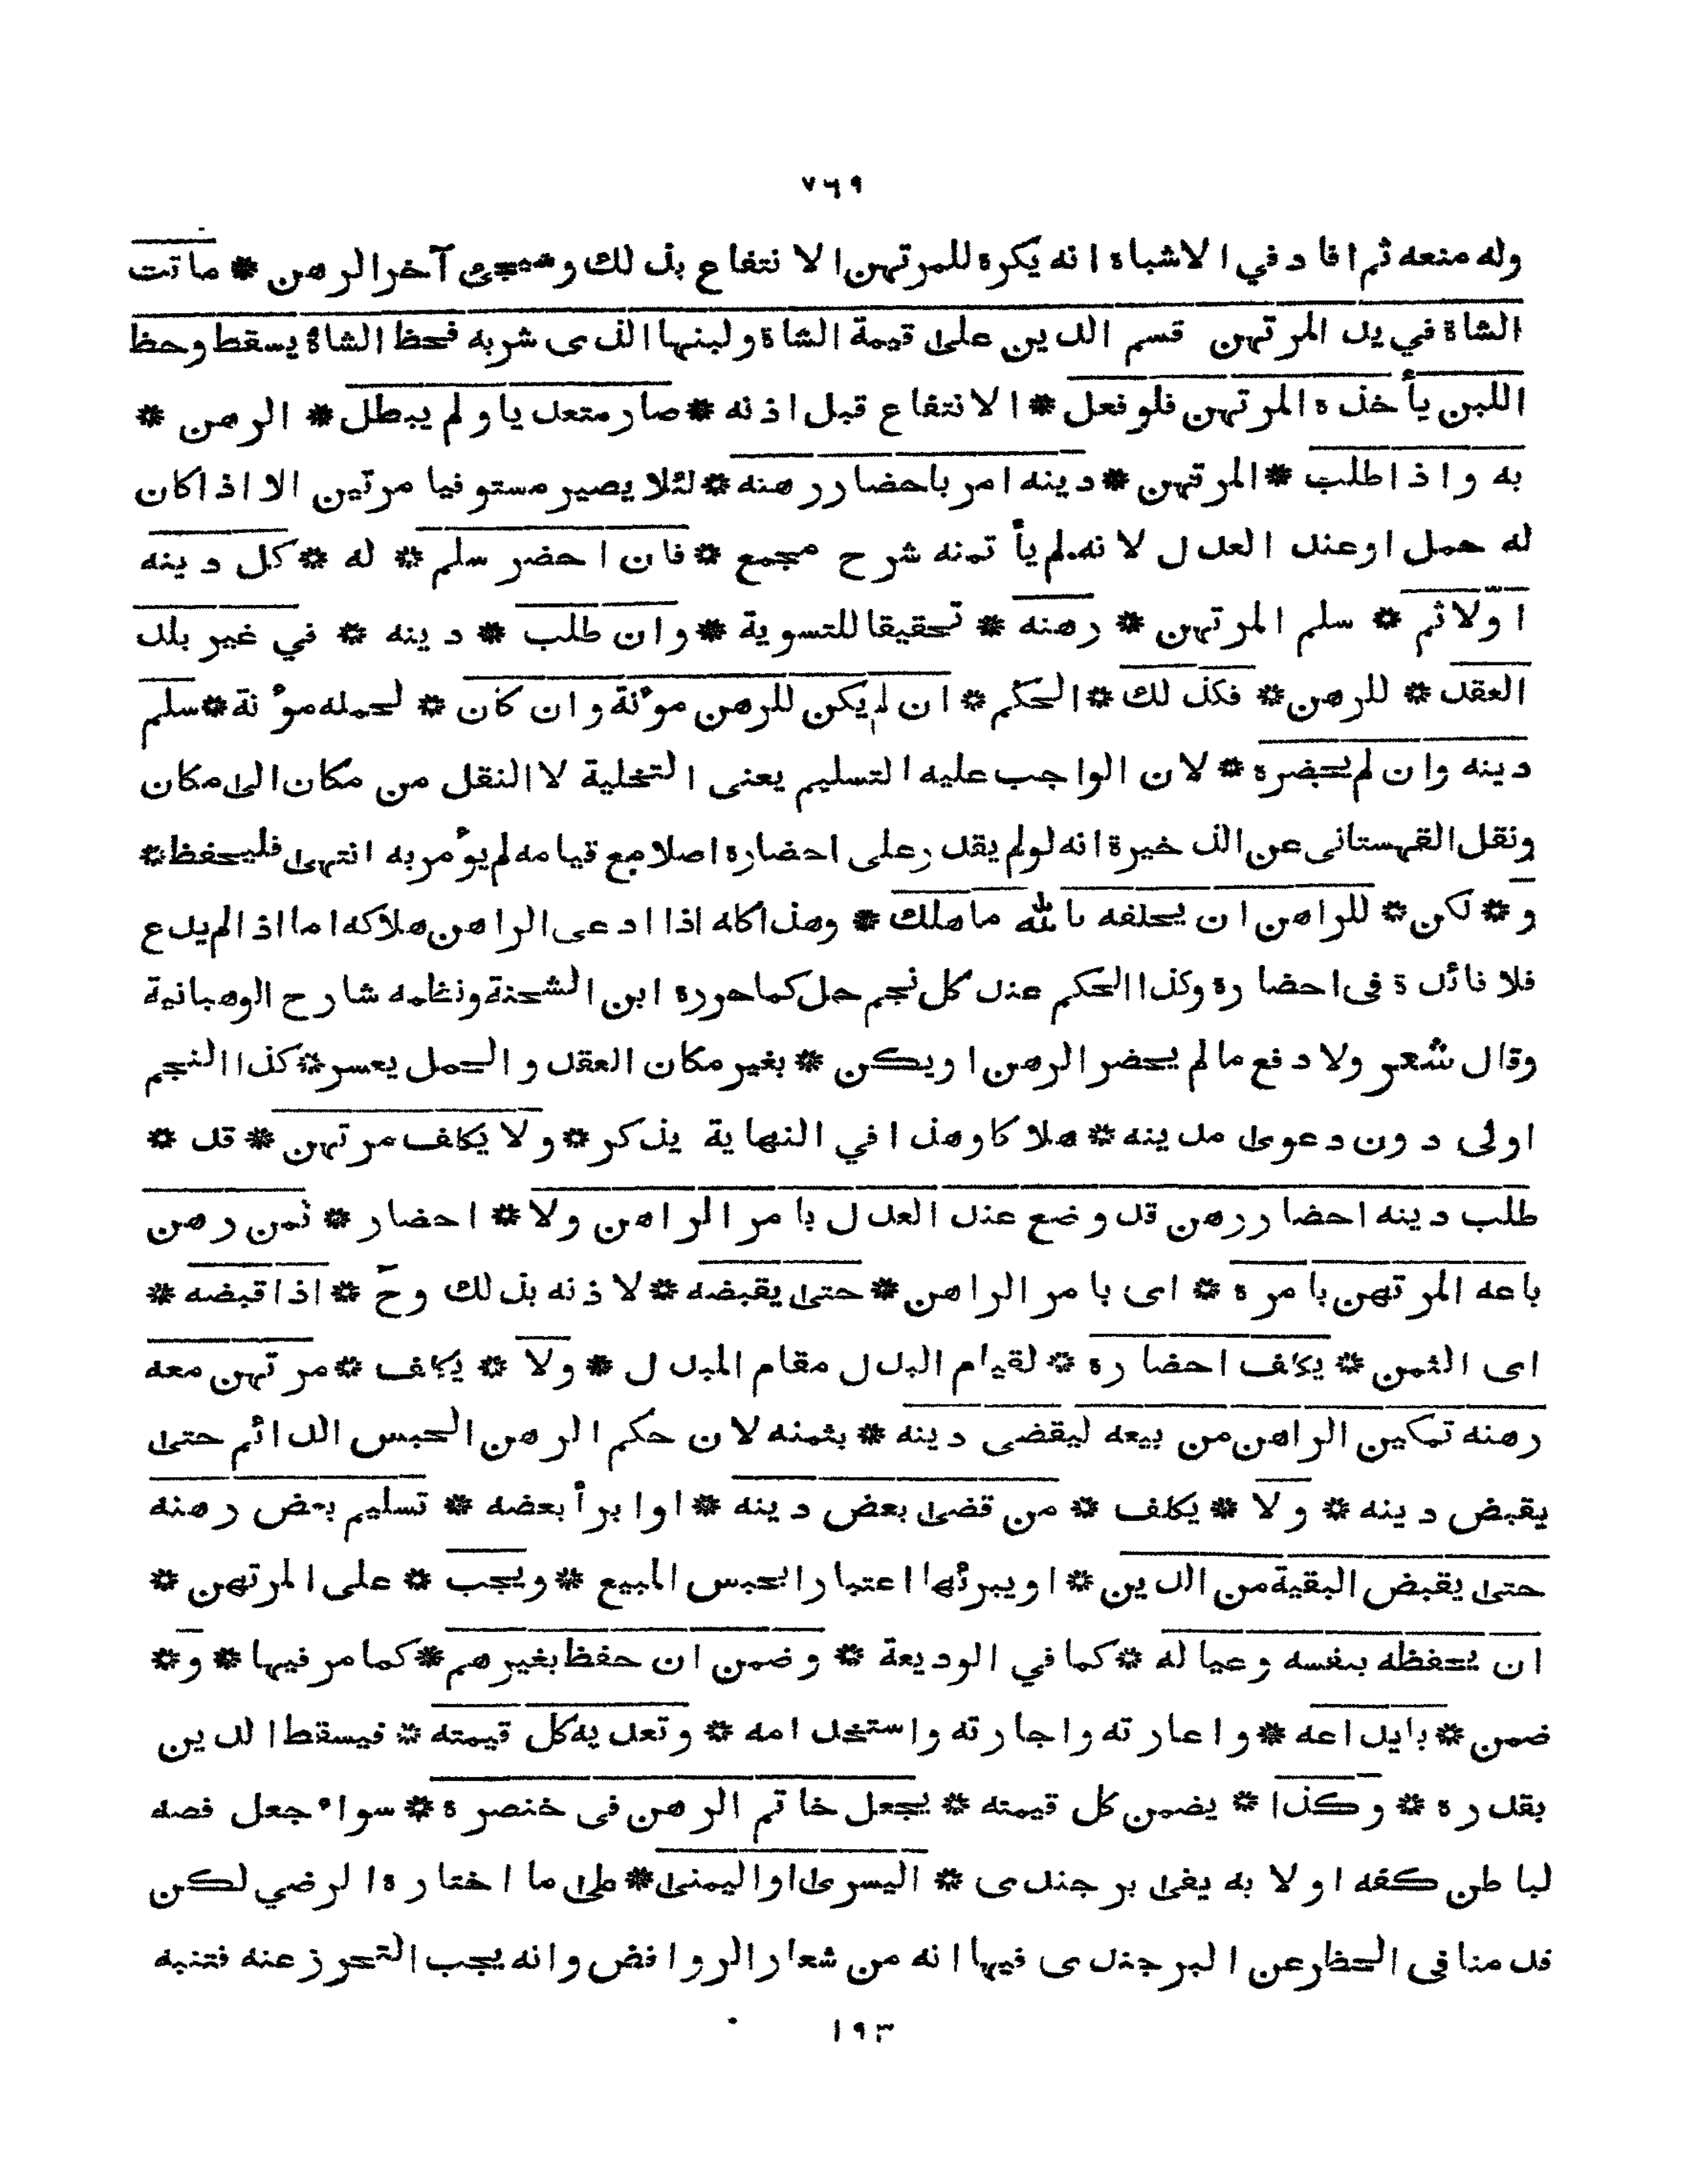 ٧٦٩
وله منعه ثم افاد في الاشباه انه يكره للمرتهن الانتفاع بذلك وسيجئ آخر الرهن * ماتت
الشاة في يد المرتهن قسم الدين على قيمة الشاة ولبنها الذى شربه فحظ الشاة يسقط وحظ
اللبن يأخذه المرتهن فلو فعل * الانتفاع قبل اذنه * صار متعديا ولم يبطل * الرهن *
به واذا طلب * المرتهن * دينه امر باحضار رهنه * لئلا يصير مستوفيا مرتين الا اذا كان
له حمل او عند العدل لانه لم يأتمنه شرح مجمع * فان احضر سلم * له * كل دينه
اوّلا ثم * سلم المرتهن * رهنه * تحقيقا للتسوية * وان طلب * دينه * في غير بلد
العقد * للرهن * فكذلك * الحكم * ان لم يكن للرهن مؤنة وان كان * لحمله مؤنة * سلم
دينه وان لم يحضره * لان الواجب عليه التسليم يعنى التخلية لا النقل من مكان الى مكان
ونقل القهستانى عن الذخيرة انه لو لم يقدر على احضاره اصلا مع قيامه لم يؤمر به انتهى فليحفظ *
و * لكن * للراهن ان يحلفه بالله ما هلك * وهذا كله اذا ادعى الراهن هلاكه اما اذا لم يدع
فلا فائدة فى احضاره وكذا الحكم عند كل نجم حل كما حرره ابن الشحنة ونظمه شارح الوهبانية
وقال شعر ولا دفع ما لم يحضر الرهن او يكن * بغير مكان العقد و الحمل يعسر * كذا النجم
اولى دون دعوى مدينه * هلاكا وهذا في النهاية يذكر * ولا يكلف مرتهن * قد *
طلب دينه احضار رهن قد وضع عند العدل بامر الراهن ولا * احضار * ثمن رهن
باعه المرتهن بامره * اى بامر الراهن * حتى يقبضه * لاذنه بذلك وحَ * اذا قبضه *
اى الثمن * يكلف احضاره * لقيام البدل مقام المبدل * ولا * يكلف * مرتهن معه
رهنه تمكين الراهن من بيعه ليقضى دينه * بثمنه لان حكم الرهن الحبس الدائم حتى
يقبض دينه * ولا * يكلف * من قضى بعض دينه * او ابرأ بعضه * تسليم بعض رهنه
حتى يقبض البقية من الدين * او يبرئها اعتبارا بحبس المبيع * ويجب * على المرتهن *
ان يحفظه بنفسه وعياله * كما في الوديعة * وضمن ان حفظ بغيرهم * كما مر فيها * و *
ضمن * بايداعه * واعارته واجارته واستخدامه * وتعديه كل قيمته * فيسقط الدين
بقدره * وكذا * يضمن كل قيمته * يجعل خاتم الرهن فى خنصره * سواء جعل فصه
لباطن كفه او لا به يفتى برجندى * اليسرى او اليمنى * على ما اختاره الرضي لكن
قدمنا فى الحظر عن البرجندى فيها انه من شعار الروافض وانه يجب التحرز عنه فتنبه
١٩٣